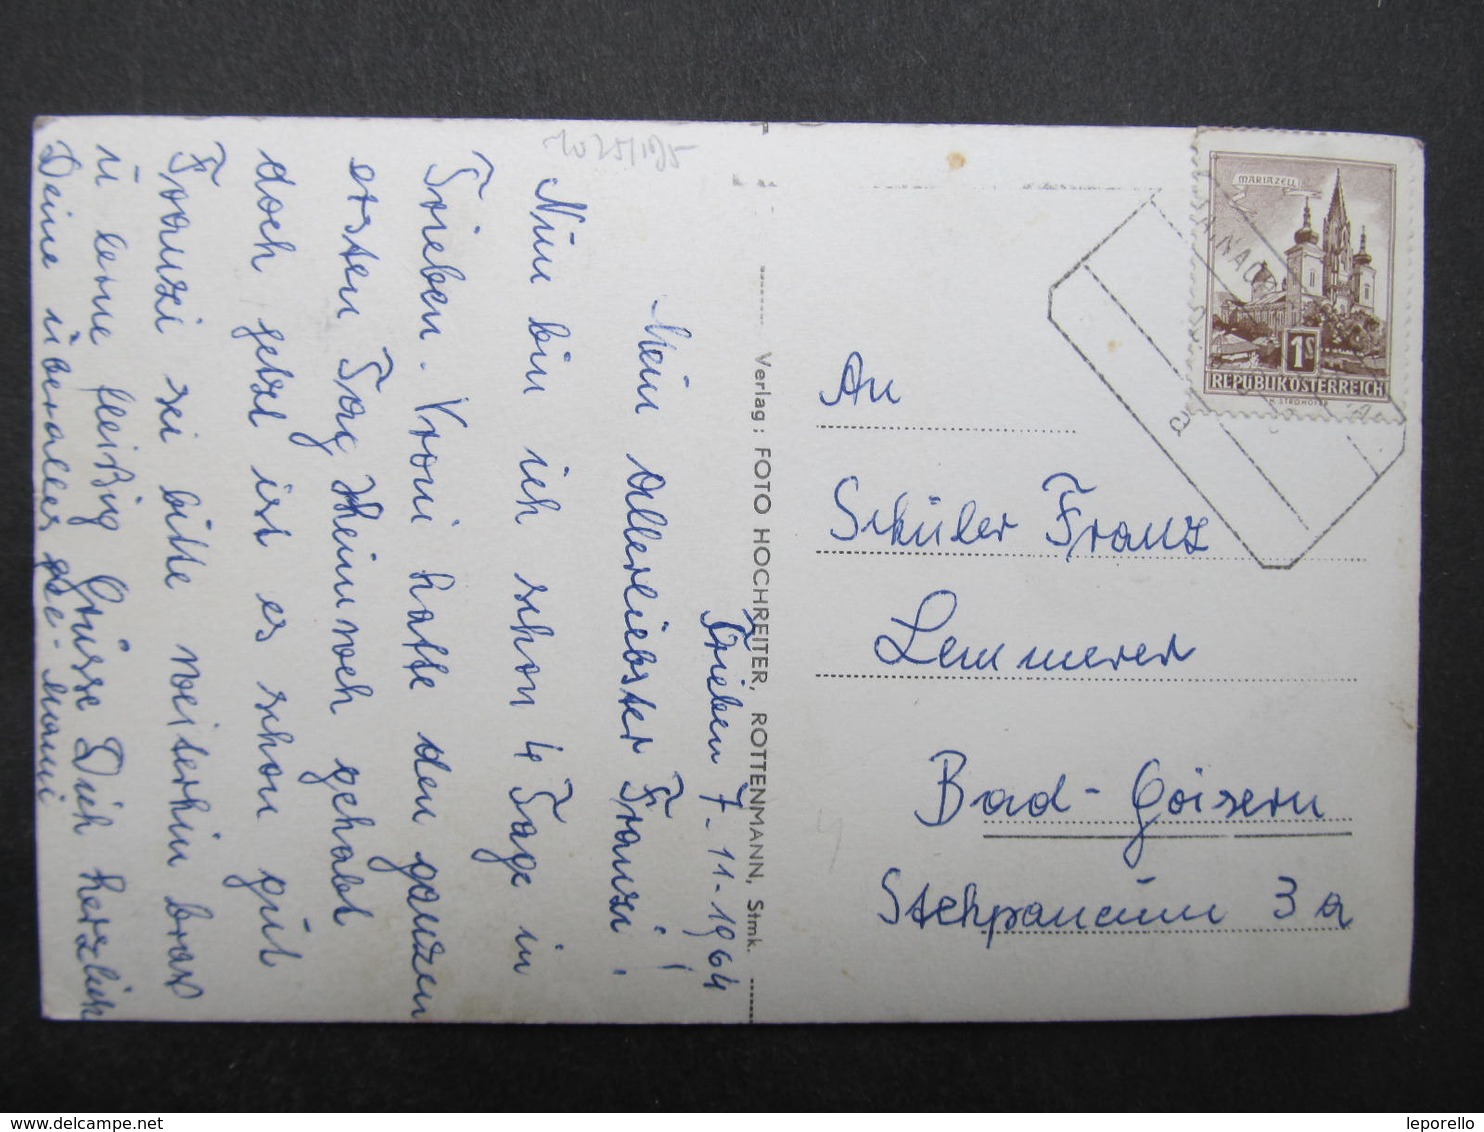 Trieben 7-11-1964
Mein Allerliebster Franzi!
Nun bin ich schon 4 Tage in
Trieben. Vroni hatte den ganzen
ersten Tag Heimweh gehabt
doch jetzt ist es schon gut
Franzi sei bitte weiterhin brav
u lerne fleißig Grüsse Dich herzlich
Deine überalles
Mami
Verlag: FOTO HOCHREITER, ROTTENMANN, Stmk.
MARIAZELL
1S
REPUBLIK ÖSTERREICH
An
Schüler Franz
Lemmerer
Bad-Goisern
Stehpaneum 3a
delcampe.net
leporello